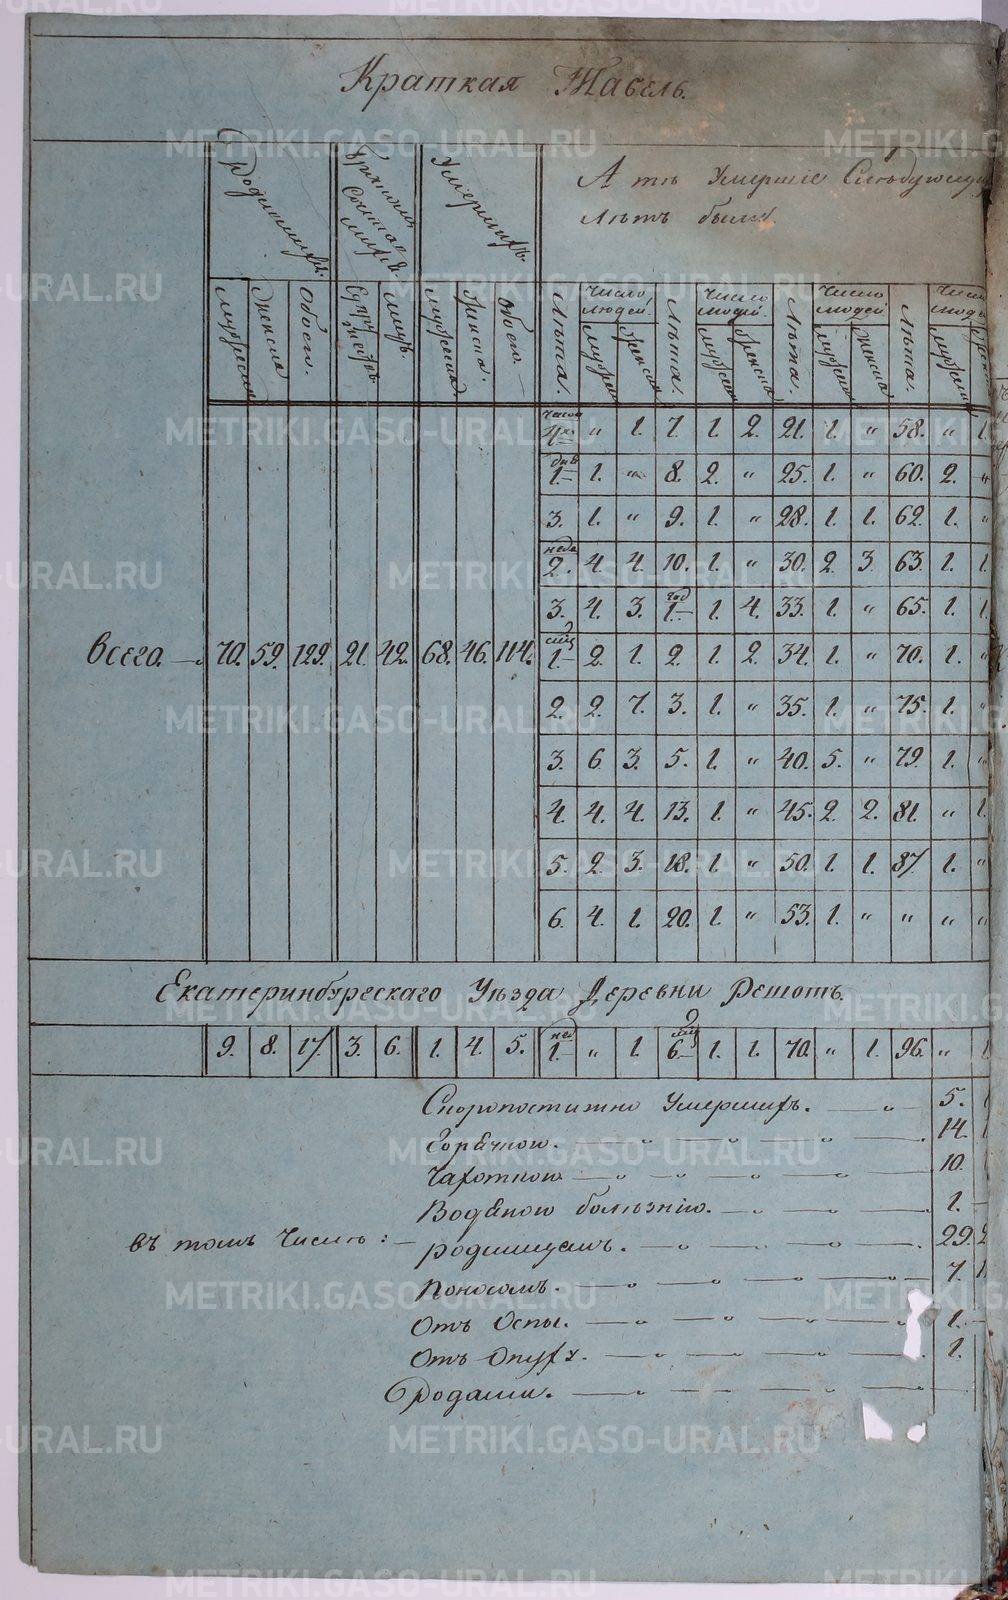 Краткая Табель.
Родившихся.
Бракомъ
Умершихъ.
А тѣ Умершіе
Лѣтъ были
мужеска
женска
обоего.
лицъ.
мужеска
женска.
обоего
Лѣта.
Число людей.
Лѣта.
Число людей.
Лѣта.
Число людей
Лѣта.
часа „ 1. 7. 1. 2. 21. 1. „ 58. „ 1.
дня 1 1. „ 8. 2. „ 25. 1. „ 60. 2. „
3. 1. „ 9. 1. „ 28. 1. 1. 62. 1. „
неде 2. 4. 4. 10. 1. „ 30. 2. 3. 63. 1. 1.
3. 4. 3. год 1 1. 4. 33. 1. „ 65. 1. 1.
Всего. 70. 59. 129. 21. 42. 68. 46. 114. 1 2. 1. 2. 1. 2. 34. 1. „ 70. 1. „
2. 2. 7. 3. 1. „ 35. 1. „ 75. 1. „
3. 6. 3. 5. 1. „ 40. 5. „ 79. 1. „
4. 4. 4. 13. 1. „ 45. 2. 2. 81. „ 1.
5. 2. 3. 18. 1. „ 50. 1. 1. 87. 1. „
6. 4. 1. 20. 1. „ 53. 1. „ „ „ „
Екатеринбургскаго Уѣзда Деревни Решотъ.
9. 8. 17. 3. 6. 1. 4. 5. нед 1. „ 1. 6 1. 1. 70. „ 1. 96. „ 1
Скоропостижно Умершихъ. 5.
Горячкою. 14.
Чахоткою 10.
Водяною болѣзнію. 1.
въ томъ Числѣ: родимцемъ. 29.
Поносомъ. 7.
Отъ Оспы. 1.
Отъ Опух 1.
Родами.
METRIKI.GASO-URAL.RU